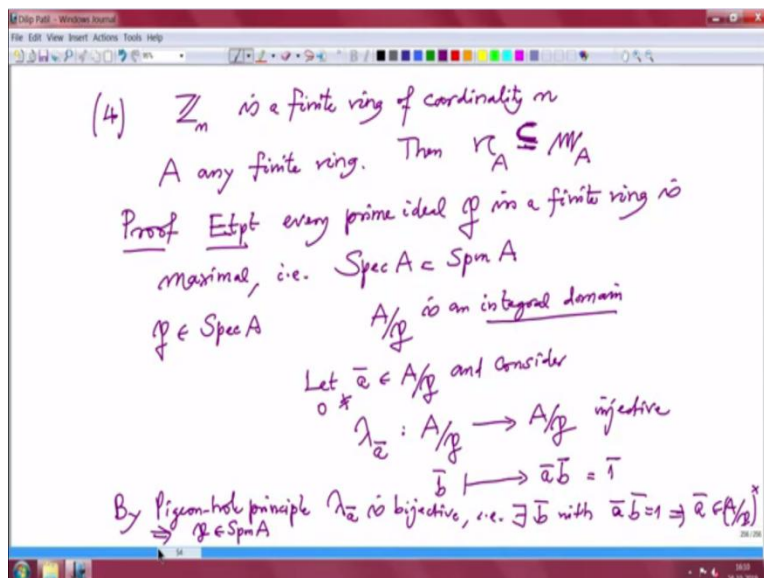 Dilip Patil - Windows Journal
File Edit View Insert Actions Tools Help
(4) ℤ_m is a finite ring of cardinality m
A any finite ring. Then 𝔫_A ⊆ 𝔪_A
Proof Etpt every prime ideal 𝔭 in a finite ring is
maximal, i.e. Spec A ⊂ Spm A
𝔭 ∈ Spec A A/𝔭 is an integral domain
Let ā ∈ A/𝔭 and consider
0 ≠
λ_ā : A/𝔭 → A/𝔭 injective
b̄ ↦ ā b̄ = 1̄
By Pigeon-hole principle λ_ā is bijective, i.e. ∃ b̄ with ā b̄ = 1 ⇒ ā ∈ (A/𝔭)^×
⇒ 𝔭 ∈ Spm A
256/256
54
16:10